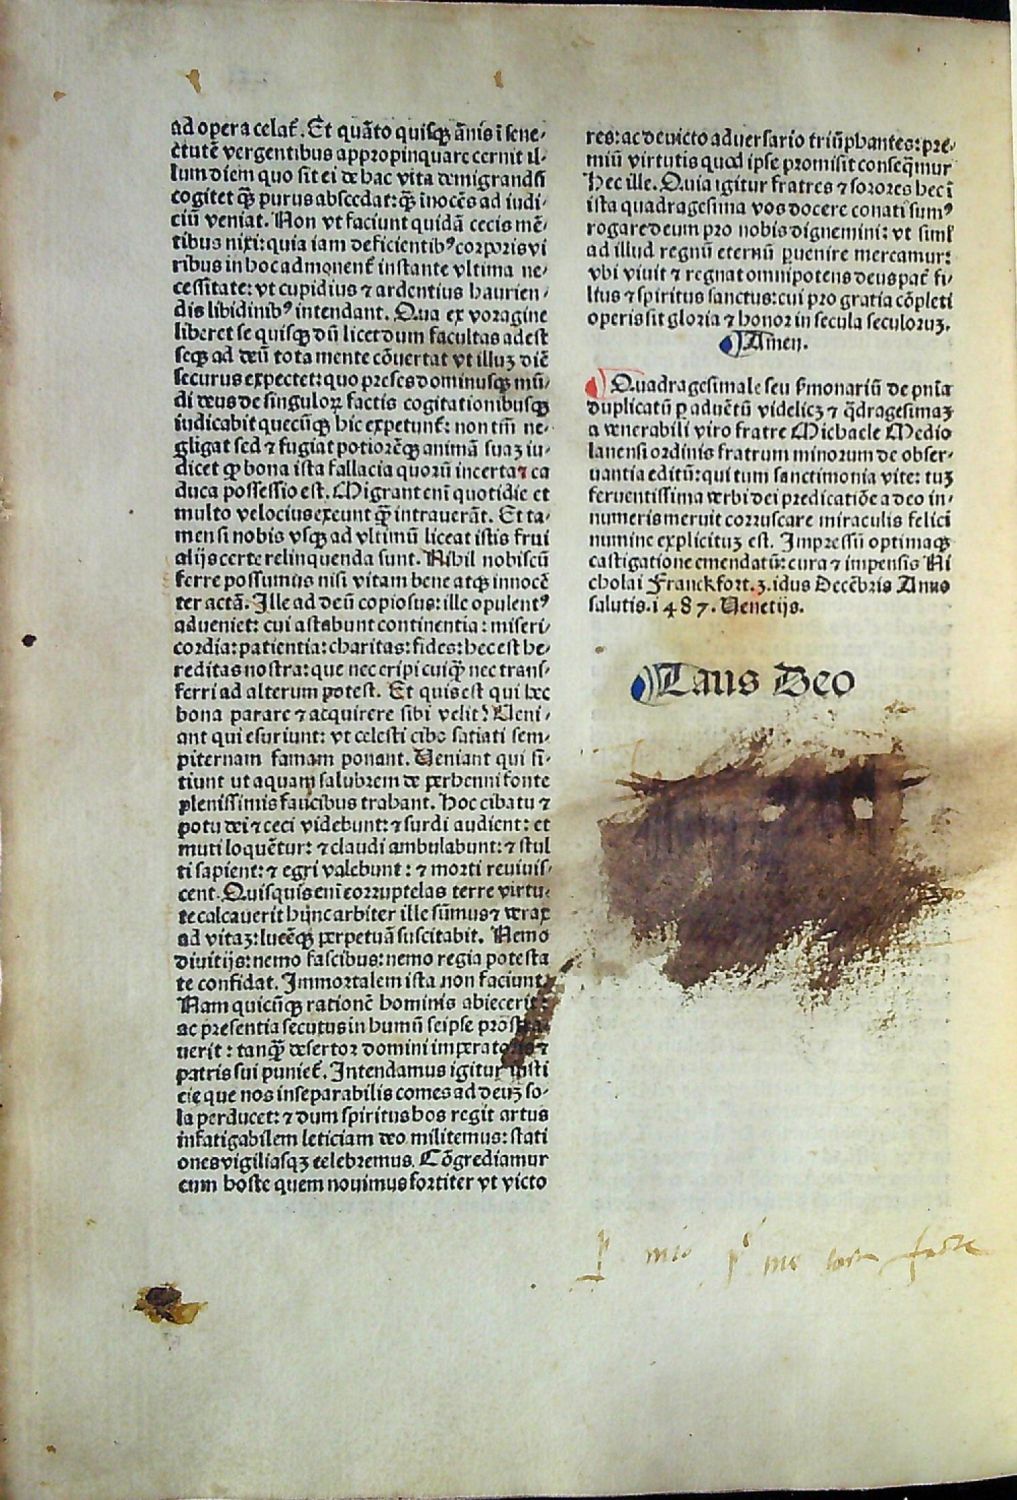 ad opera celat᷑. Et quāto quisqꝫ ānis ī sene-
ctutē vergentibus appropinquare cernit il-
lum diem quo sit ei de hac vita demigrandū
cogitet qꝫ̄ purus abscedat: qꝫ̄ inocēs ad iudi-
ciū veniat. Non vt faciunt quidā cecis mē-
tibus nixi: quia iam deficientibꝰ corporis vi
ribus in hoc admonent᷑ instante vltima ne-
cessitate: vt cupidius ⁊ ardentius haurien-
dis libidinibꝰ intendant. Qua ex voragine
liberet se quisqꝫ dū licet dum facultas adest
seqꝫ ad deū tota mente cōuertat vt illuꝫ diē
securus expectet: quo preses dominusqꝫ mū-
di deus de singuloꝝ factis cogitationibusqꝫ
iudicabit quecūqꝫ hic expetunt᷑: non tm̄ ne-
gligat sed ⁊ fugiat potiorēqꝫ animā suaꝫ iu-
dicet ꝙ bona ista fallacia quorū incerta ⁊ ca
duca possessio est. Migrant em̄ quotidie et
multo velocius exeunt qꝫ̄ intrauerāt. Et ta-
men si nobis vsqꝫ ad vltimū liceat istis frui
alijs certe relinquenda sunt. Nihil nobiscū
ferre possumus nisi vitam bene atqꝫ innocē
ter actā. Ille ad deū copiosus: ille opulentꝰ
adueniet: cui astabunt continentia: miseri-
cordia: patientia: charitas: fides: hec est he-
reditas nostra: que nec eripi cuiqꝫ̄ nec trans-
ferri ad alterum potest. Et quis est qui hec
bona parare ⁊ acquirere sibi velit? Ueni-
ant qui esuriunt: vt celesti cibo satiati sem-
piternam famam ponant. Ueniant qui si-
tiunt ut aquam salubrem de perhenni fonte
plenissimis faucibus trahant. Hoc cibatu ⁊
potu dei ⁊ ceci videbunt: ⁊ surdi audient: et
muti loquētur: ⁊ claudi ambulabunt: ⁊ stul
ti sapient: ⁊ egri valebunt: ⁊ morti reuiuis-
cent. Quisquis em̄ corruptelas terre virtu-
te calcauerit hūnc arbiter ille sūmus ⁊ verax
ad vitaꝫ: lucēqꝫ perpetuā suscitabit. Nemo
diuitijs: nemo fascibus: nemo regia potesta
te confidat. Immortalem ista non faciunt
Nam quicūqꝫ rationē hominis abiecerit:
ac presentia secutus in humū seipse prostra-
uerit: tanqꝫ̄ desertor domini imperatoris ⁊
patris sui puniet᷑. Intendamus igitur iusti
cie que nos inseparabilis comes ad deuꝫ so-
la perducet: ⁊ dum spiritus hos regit artus
infatigabilem leticiam deo militemus: stati
ones vigiliasqꝫ celebremus. Cōgrediamur
cum hoste quem nouimus fortiter vt victo
res: ac deuicto aduersario triūphantes: pre-
miū virtutis quod ipse promisit conseq̄mur
Hec ille. Quia igitur fratres ⁊ sorores hec ī
ista quadragesima vos docere conati sumꝰ
rogare deum pro nobis dignemini: vt siml᷑
ad illud regnū eternū peruenire mercamur:
vbi viuit ⁊ regnat omnipotens deus pat᷑ fi-
lius ⁊ spiritus sanctus: cui pro gratia cōpleti
operis sit gloria ⁊ honor in secula seculoruꝫ.
Amen.
Quadragesimale seu ẜmonariū de pn̄ia
duplicatū ꝑ aduētū videlicꝫ ⁊ q̄dragesimaꝫ
a venerabili viro fratre Michaele Medio
lanensi ordinis fratrum minorum de obser-
uantia editū: qui tum sanctimonia vite: tuꝫ
feruentissima verbi dei predicatiōe adeo in-
numeris meruit corruscare miraculis felici
numine explicituꝫ est. Impressū optimaqꝫ
castigatione emendatū: cura ⁊ impensis Ni
cholai Franckfort. 3. idus Decēbris Anno
salutis. 1487. Uenetijs.
Laus Deo